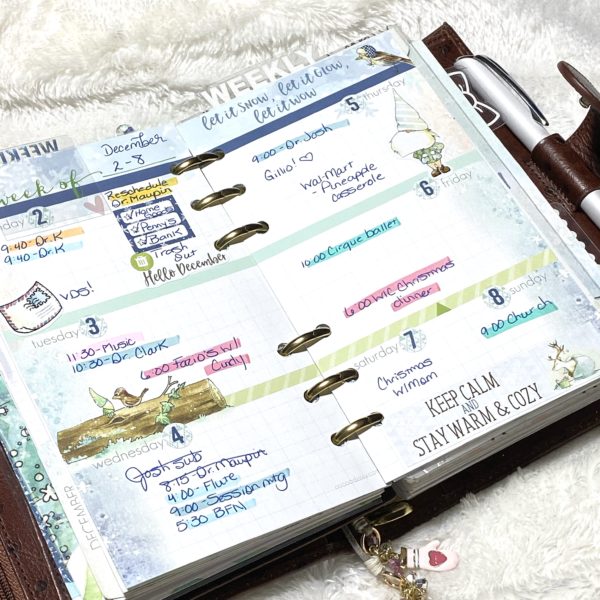 WEEKLY
WEEKLY
week of
December
2-8
let it snow, let it glow,
let it wow
2
9:40-Dr. K
9:40-Dr. K
Reschedule
Dr. Maupin
Home
Goods
Penny's
Bank
Trash
Out
Hello December
VDS!
tuesday 3
11:30-Music
10:30-Dr. Clark
6:00 Fazio's w/
Cindy
wednesday 4
Josh sub
8:15-Dr. Maupin
4:00-Flute
9:00-Session mtg
5:30 BFN
DECEMBER
5 thursday
9:00-Dr. Josh
Gino! ♡
Wal-Mart
Pineapple
casserole
6 friday
Cirque ballet
6:00 WIC Christmas
dinner
saturday 7
Christmas
w/mom
8 sunday
9:00 Church
KEEP CALM
AND
STAY WARM & COZY